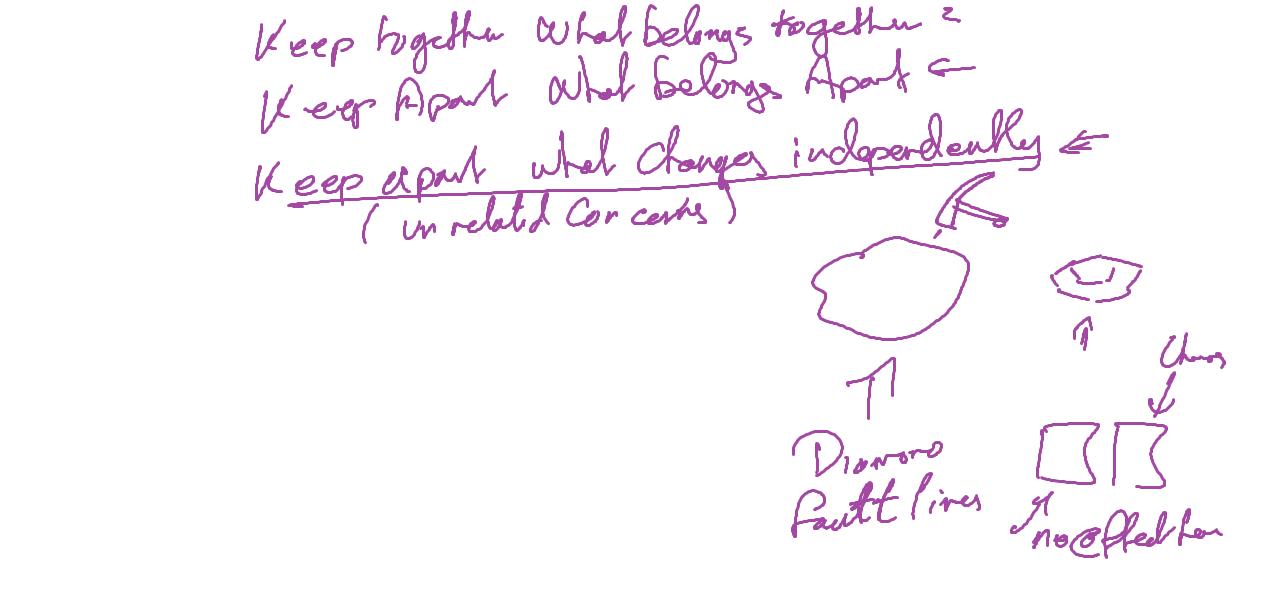 Keep together what belongs together ?
Keep Apart what belongs Apart
Keep apart what changes independently
(unrelated Concerns)
Change
Diamond
fault lines
no effect here